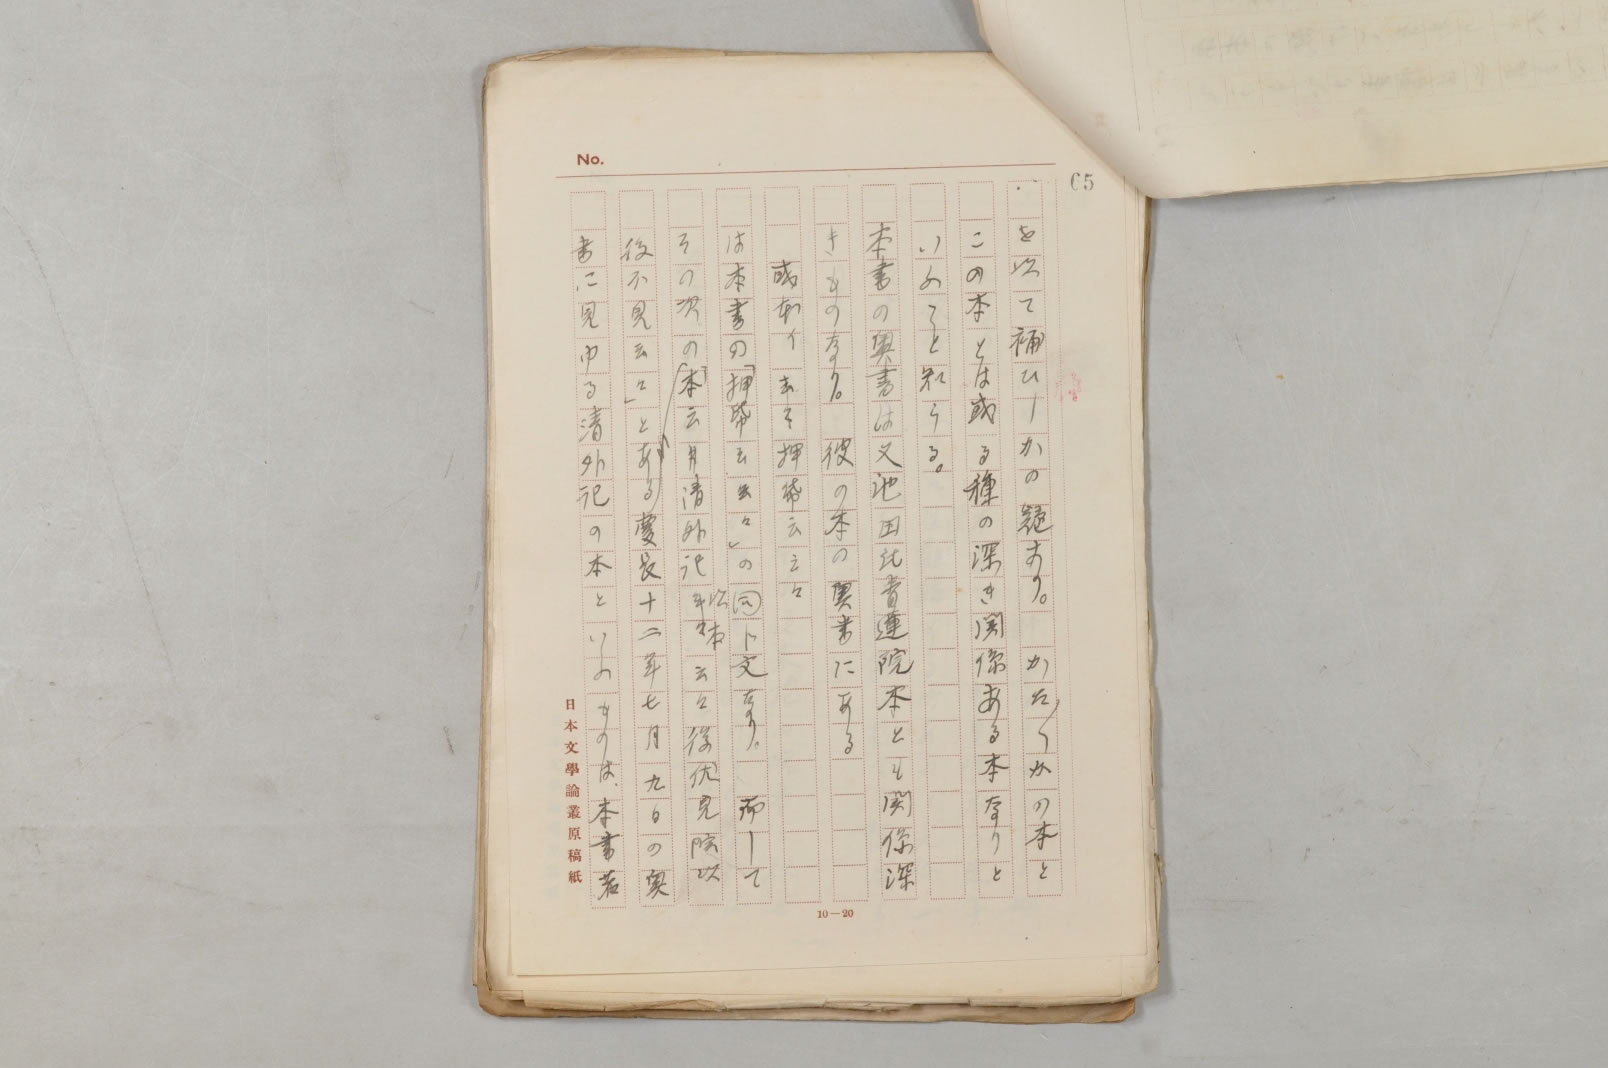 No.
65
を以て補ひしかの観あり。かたがたかの本と
この本とは或る種の深き関係ある本なりと
いふこと知らる。
本書の奥書は又池田氏青蓮院本とも関係深
きものなり。彼の本の奥書にある
或本イ 去々押帋云云々
は本書の「押帋云云々」の同じ文なり。而して
その次の「本云 清外記 以本云々 後伏見院以
後不見云々」とある慶長十二年七月九日の奥
書に見ゆる清外記の本といふものは、本書若
日本文學論叢原稿紙
10—20